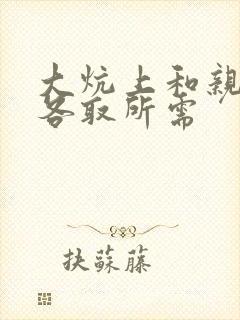 大炕上和親
各取所需
抉蘇藤